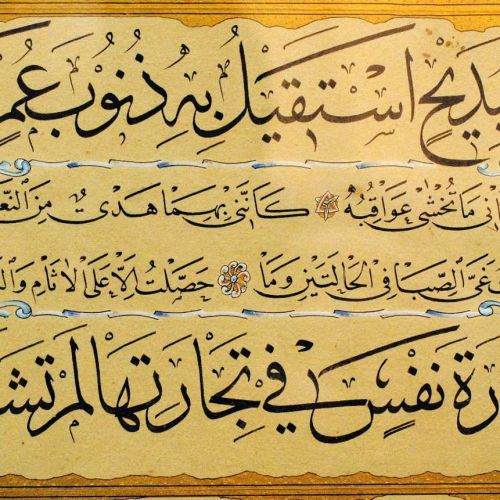 ديحٍ اسْتَقيلُ بِهِ ذُنُوبَ عُمر
اني ما تخشى عواقبُهُ كَأنَّني بهِما هَدىٌ مِنَ النَّعَـ
ـتُ غَيَّ الصِّبَا فى الحالتَيْنِ وما حَصَّلتُ إلّا عَلى الآثامِ وَالـ
ـارَةَ نَفْسٍ في تِجَارَتِها لم تَشـ